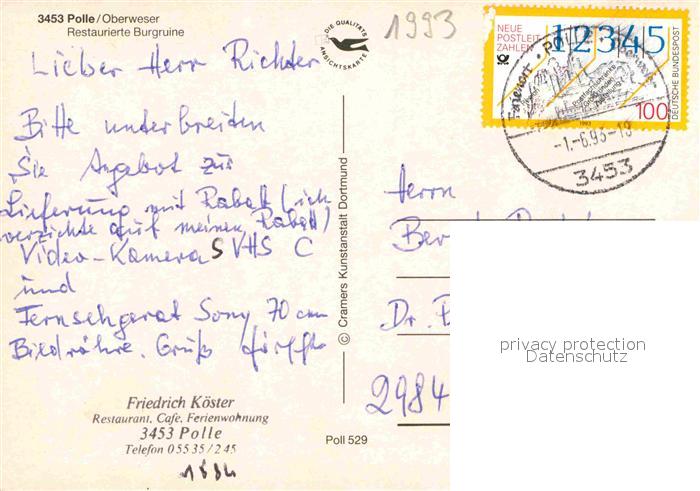 3453 Polle/Oberweser
Restaurierte Burgruine
DIE QUALITÄTS
ANSICHTSKARTE
1993
NEUE
POSTLEIT
ZAHLEN
12345
DEUTSCHE BUNDESPOST
100
1993
-1.-6.93-18
3453
Lieber Herr Richter
Bitte unterbreiten
Sie Angebot zur
Lieferung mit Rabatt (ich
verzichte auf meinen Rabatt)
Video-Kamera SVHS C
und
Fernsehgerät Sony 70 cm
Bildröhre. Gruß
Herrn
Dr.
2984
© Cramers Kunstanstalt Dortmund
privacy protection
Datenschutz
Friedrich Köster
Restaurant, Cafe, Ferienwohnung
3453 Polle
Telefon 05535/245
Poll 529